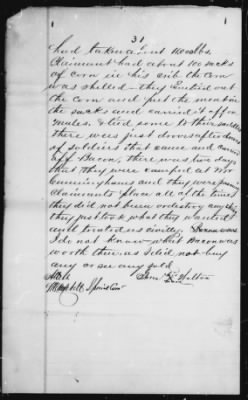 31
had taken about 100 lbs.
Claimant had about 100 sacks
of corn in his crib the corn
was shelled - they Emtied out
the corn and put the meat in
the sacks and carried it off on
mules. & tied some to their saddles
there was just droves after droves
of soldiers that came and carried
off Bacon, there was two days
that they were camped at Mr
Cunninghams and they were
Claimants place all the time
they did not
they just took what they wanted
and treated us civilly.
I do not know what Bacon was
worth then as I did not buy
any or see any sold